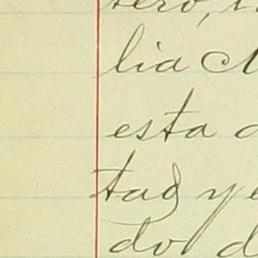 tero,
lia
esta
tad y
do d